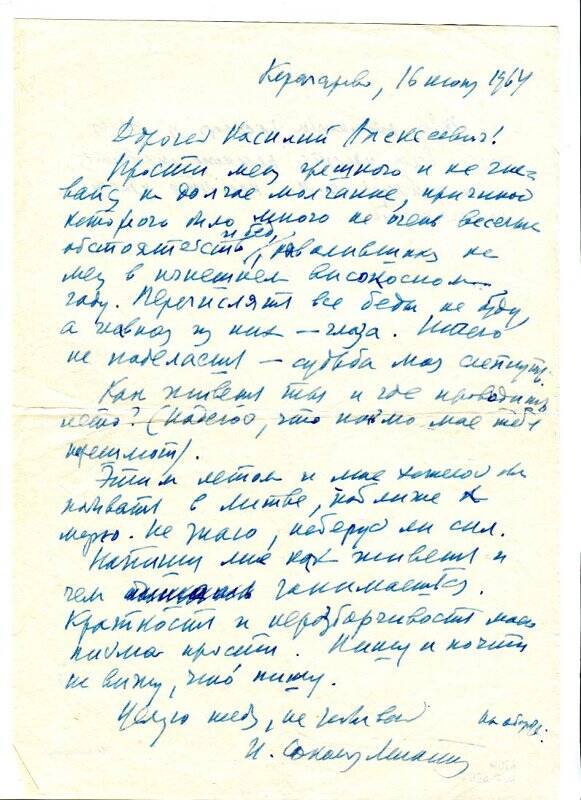 Карачарово, 16 июня 1964
Дорогой Василий Алексеевич!
Прости меня грешного и не гне-
вайся на долгое молчание, причиной
которого было много не очень веселых
обстоятельств и бед, навалившихся на
меня в нынешнем високосном
году. Перечислять все беды не буду,
а главная из них — глаза. Ничего
не поделаешь — судьба моя слепнуть.
Как живешь ты и где проводишь
лето? (Надеюсь, что письмо мое тебе
перешлют).
Этим летом и мне хотелось бы
побывать в Литве, поближе к
морю. Не знаю, наберусь ли сил.
Напиши мне как живешь и
чем занимаешься.
Краткость и неразборчивость моего
письма прости. Пишу и почти
не вижу, что пишу.
Целую тебя, не забывай
На обороте
И. Соколов-Микитов